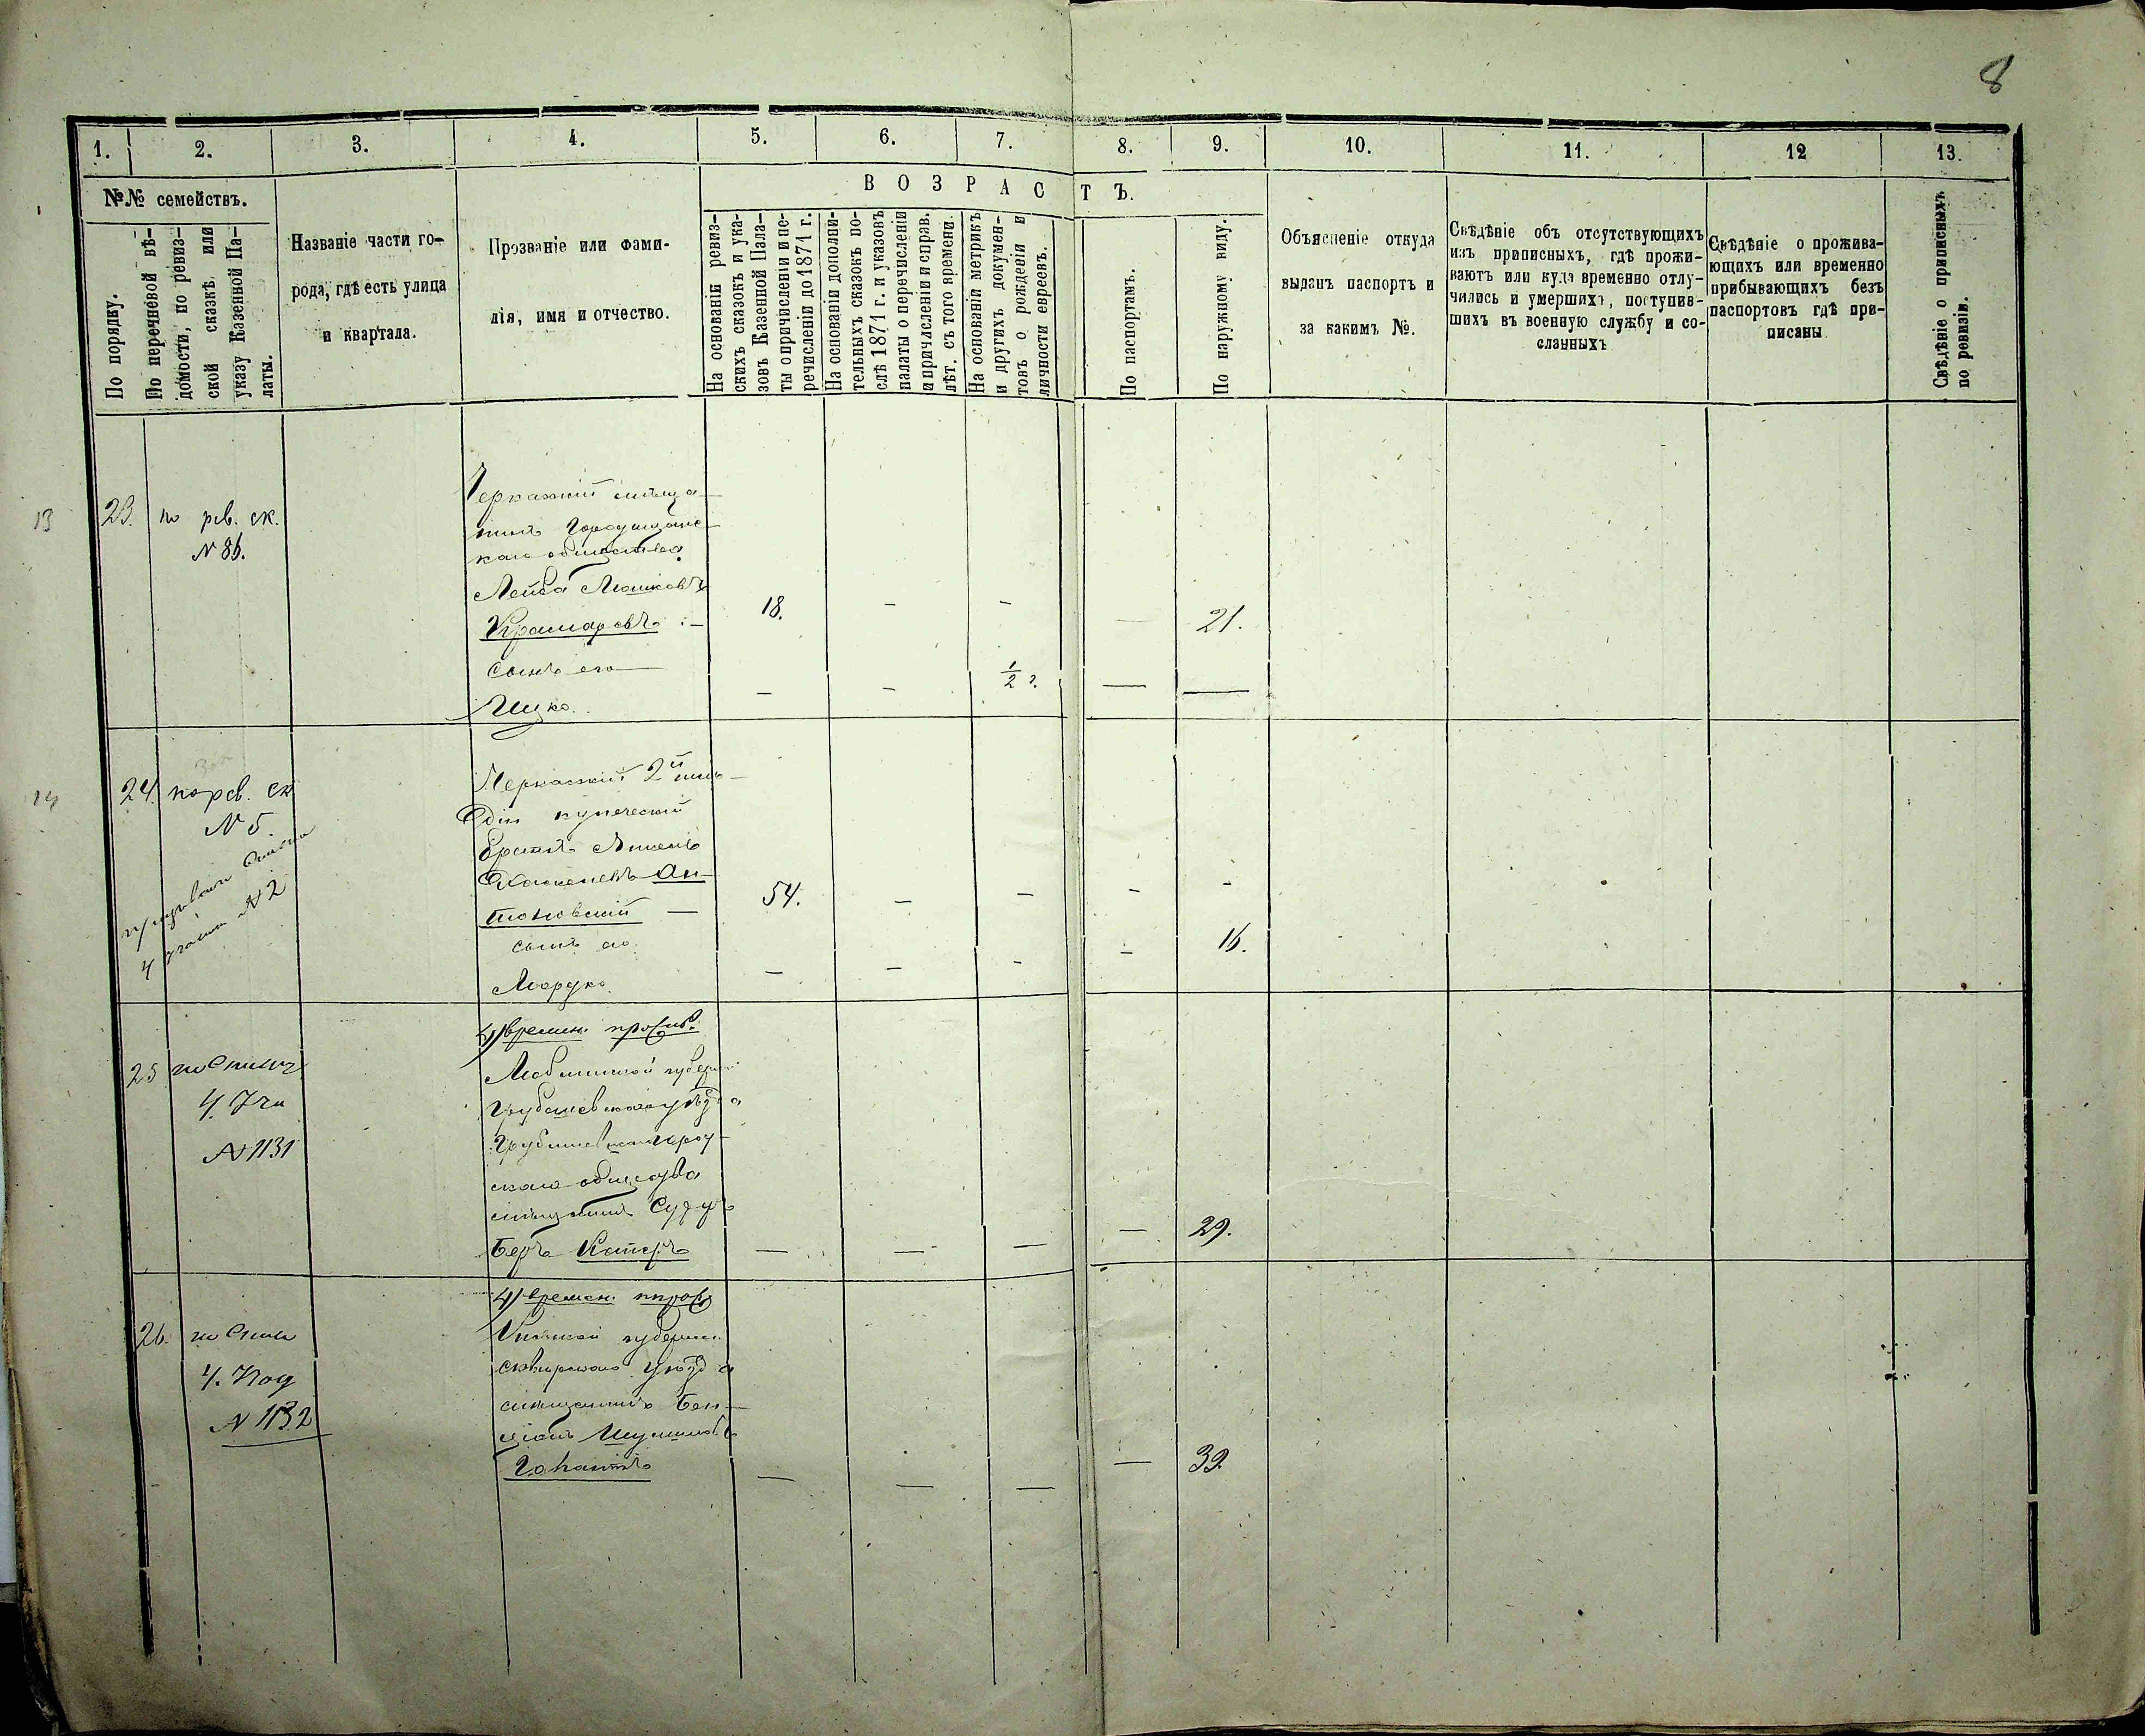 8
1. 2. 3. 4. 5. 6. 7. 8. 9. 10. 11. 12 13.
№№ семействъ.
По порядку.
По перечневой вѣ-
домости, по ревиз-
ской сказкѣ или
указу Казенной Па-
латы.
Названіе части го-
рода, гдѣ есть улица
и квартала.
Прозваніе или Фами-
лія, имя и отчество.
ВОЗРАСТЪ.
На основаніи ревиз-
скихъ сказокъ и ука-
зовъ Казенной Пала-
ты о причисленіи и пе-
речисленіи до 1871 г.
На основаніи дополни-
тельныхъ сказокъ по-
слѣ 1871 г. и указовъ
палаты о перечисленіи
и причисленіи и справ.
лѣт. съ того времени.
На основаніи метрикъ
и другихъ докумен-
товъ о рожденіи и
личности евреевъ.
По паспортамъ.
По наружному виду.
Объясненіе откуда
выданъ паспортъ и
за какимъ №.
Свѣдѣніе объ отсутствующихъ
изъ приписныхъ, гдѣ прожи-
ваютъ или куда временно отлу-
чились и умершихъ, поступив-
шихъ въ военную службу и со-
сланныхъ
Свѣдѣніе о прожива-
ющихъ или временно
прибывающихъ безъ
паспортовъ гдѣ при-
писаны
Свѣдѣніе о приписныхъ
по ревизіи.
13
23. по рев. ск.
N 86.
Черкаскій мѣща-
нинъ Городищенс-
каго общества
Лейба Мошковъ
Крамаровъ :— 18. — — — 21.
сынъ его
Ицко. — — 1/2 г. — —
14
24. по рев. ск
N 5.
4 N 2
Черкаскій 2й гиль-
діи купеческій
братъ
Ан-
тоновскій — 54. — — — -
сынъ его.
Мордко. — — - — 16.
25 по
4.
N 1131
4) времен. прожив.
Люблинской губерн
Грубешевскаго уѣзда
скаго общества
мѣщанинъ
Беръ — — — — 29.
26. по
4.
N 1132
4) времен. прож
Кіевской губерніи
Сквирскаго уѣзда
мѣщанинъ Бен-
ціонъ
— — — — 39.